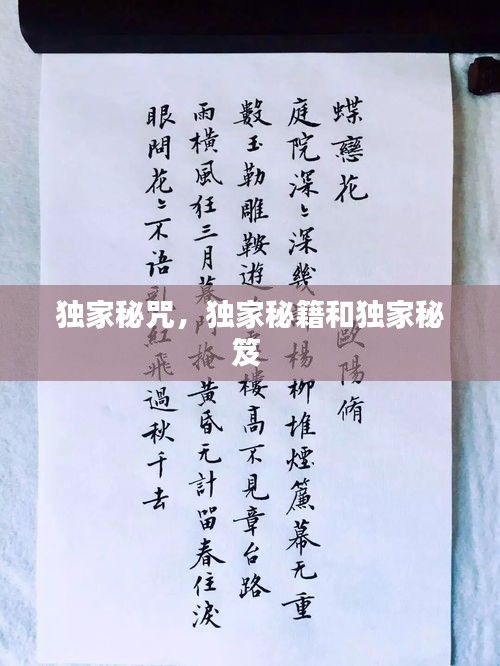 蝶戀花 歐陽脩
庭院深〻深幾 楊柳堆煙簾幕无重
數玉勒雕鞍遊 樓高不見章台路
雨橫風狂三月暮門掩黃昏无計留春住淚
眼問花〻不語亂紅飛過秋千去
独家秘咒，独家秘籍和独家秘
笈